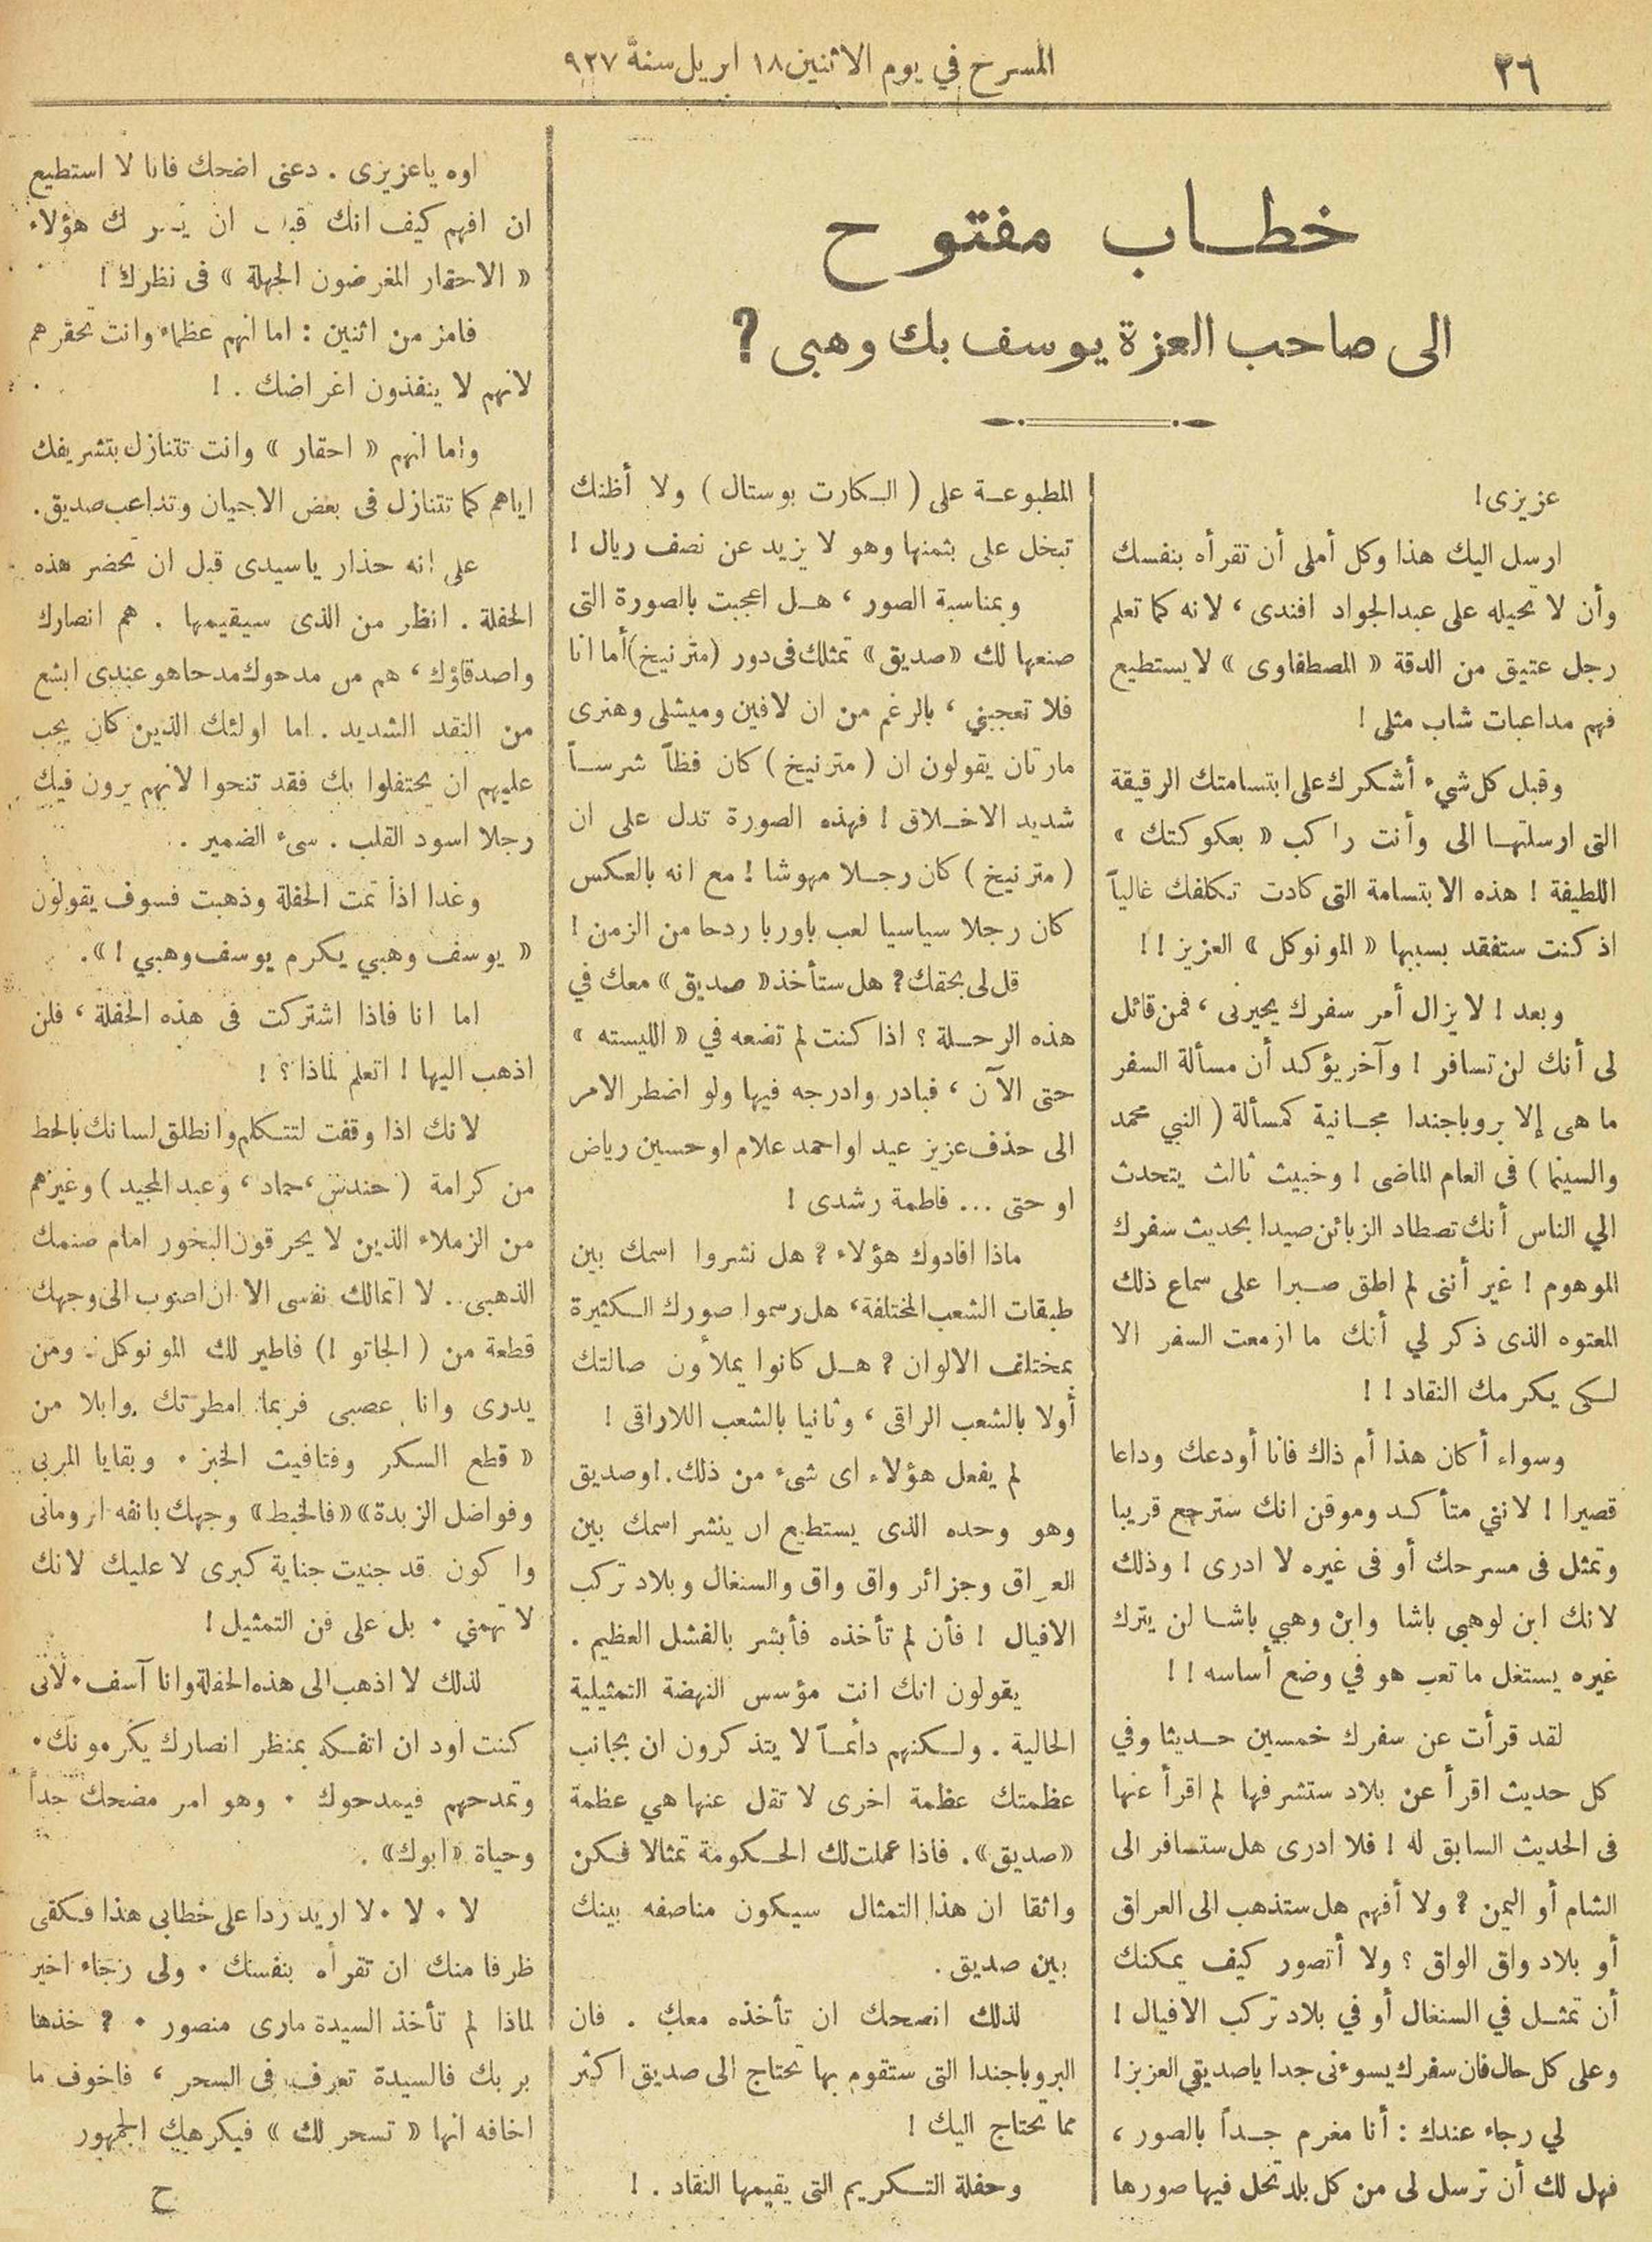 ٣٦
المسرح في يوم الاثنين ١٨ ابريل سنة ٩٢٧
خطاب مفتوح
الى صاحب العزة يوسف بك وهبى ?
عزيزى!
ارسل اليك هذا وكل أملى أن تقرأه بنفسك
وأن لا تحيله على عبد الجواد افندى ، لانه كما تعلم
رجل عتيق من الدقة « المصطفاوى » لا يستطيع
فهم مداعبات شاب مثلى !
وقبل كل شيء أشكرك على ابتسامتك الرقيقة
التى ارسلتها الى وأنت راكب « بعكوكتك »
اللطيفة ! هذه الابتسامة التى كادت تكلفك غالياً
اذ كنت ستفقد بسببها « المونوكل » العزيز ! !
وبعد ! لا يزال أمر سفرك يحيرنى ، فمن قائل
لى أنك لن تسافر ! وآخر يؤكد أن مسألة السفر
ما هى إلا بروباجندا مجانية كمسألة ( النبي محمد
والسينما ) فى العام الماضى ! وخبيث ثالث يتحدث
الي الناس أنك تصطاد الزبائن صيدا بحديث سفرك
الموهوم ! غير أننى لم اطق صبرا على سماع ذلك
المعتوه الذى ذكر لي أنك ما ازمعت السفر الا
لكى يكرمك النقاد ! !
وسواء أكان هذا أم ذاك فانا أودعك وداعا
قصيرا ! لانني متأكد وموقن انك سترجع قريبا
وتمثل فى مسرحك أو فى غيره لا ادرى ! وذلك
لانك ابن لوهبى باشا وابن وهبي باشا لن يترك
غيره يستغل ما تعب هو في وضع أساسه ! !
لقد قرأت عن سفرك خمسين حديثا وفي
كل حديث اقرأ عن بلاد ستشرفها لم اقرأ عنها
فى الحديث السابق له ! فلا ادرى هل ستسافر الى
الشام أو اليمن ? ولا أفهم هل ستذهب الى العراق
أو بلاد واق الواق ؟ ولا أتصور كيف يمكنك
أن تمثل في السنغال أو في بلاد تركب الافيال !
وعلى كل حال فان سفرك يسوءنى جدا ياصديقي العزيز!
لي رجاء عندك : أنا مغرم جداً بالصور ،
فهل لك أن ترسل لى من كل بلد تحل فيها صورها
المطبوعة على ( الكارت بوستال ) ولا أظنك
تبخل على بثمنها وهو لا يزيد عن نصف ريال !
وبمناسبة الصور ، هل اعجبت بالصورة التى
صنعها لك «صديق» تمثلك فى دور (مترنيخ) أما انا
فلا تعجبني ، بالرغم من ان لافين وميشلى وهنرى
مارتان يقولون ان ( مترنيخ ) كان فظاً شرساً
شديد الاخلاق ! فهذه الصورة تدل على ان
( مترنيخ ) كان رجلا مهوشا ! مع انه بالعكس
كان رجلا سياسيا لعب باوربا ردحا من الزمن !
قل لى بحقك ? هل ستأخذ « صديق » معك في
هذه الرحلة ؟ اذا كنت لم تضعه في « الليسته »
حتى الآن ، فبادر وادرجه فيها ولو اضطر الامر
الى حذف عزيز عيد او احمد علام او حسين رياض
او حتى ... فاطمة رشدى !
ماذا افادوك هؤلاء ? هل نشروا اسمك بين
طبقات الشعب المختلفة، هل رسموا صورك الكثيرة
بمختلف الالوان ? هل كانوا يملأون صالتك
أولا بالشعب الراقى ، وثانيا بالشعب اللاراقى !
لم يفعل هؤلاء اى شىء من ذلك. او صديق
وهو وحده الذى يستطيع ان ينشر اسمك بين
العراق وجزائر واق واق والسنغال وبلاد تركب
الافيال ! فأن لم تأخذه فأبشر بالفشل العظيم .
يقولون انك انت مؤسس النهضة التمثيلية
الحالية . ولكنهم دائماً لا يتذكرون ان بجانب
عظمتك عظمة اخرى لا تقل عنها هي عظمة
«صديق». فاذا عملت لك الحكومة تمثالا فكن
واثقا ان هذا التمثال سيكون مناصفه بينك
بين صديق .
لذلك انصحك ان تأخذه معك . فان
البروباجندا التى ستقوم بها تحتاج الى صديق اكثر
مما تحتاج اليك !
وحفلة التكريم التى يقيمها النقاد . !
اوه ياعزيزى . دعنى اضحك فانا لا استطيع
ان افهم كيف انك قبلت ان هؤلاء
« الاحقار المغرضون الجهلة » فى نظرك !
فامر من اثنين : اما انهم عظماء وانت تحقرهم
لانهم لا ينفذون اغراضك . !
واما انهم « احقار » وانت تتنازل بتشريفك
اياهم كما تتنازل فى بعض الاحيان وتداعب صديق .
على انه حذار ياسيدى قبل ان تحضر هذه
الحفلة . انظر من الذى سيقيمها . هم انصارك
واصدقاؤك ، هم من مدحوك مدحا هو عندى ابشع
من النقد الشديد . اما اولئك الذين كان يجب
عليهم ان يحتفلوا بك فقد تنحوا لانهم يرون فيك
رجلا اسود القلب . سىء الضمير .
وغدا اذا تمت الحفلة وذهبت فسوف يقولون
« يوسف وهبي يكرم يوسف وهبي ! ».
اما انا فاذا اشتركت فى هذه الحفلة ، فلن
اذهب اليها ! اتعلم لماذا ؟ !
لانك اذا وقفت لتتكلم وانطلق لسانك بالحط
من كرامة ( حندس ، حماد ، وعبد المجيد ) وغيرهم
من الزملاء الذين لا يحرقون البخور امام صنمك
الذهبى .. لا اتمالك نفسى الا ان اصوب الى وجهك
قطعة من ( الجاتو !) فاطير لك المونوكل . ومن
يدرى وانا عصبى فربما امطرتك وابلا من
« قطع السكر وفتافيت الخبز . وبقايا المربى
وفواضل الزبدة» «فالخبط» وجهك بانفه الرومانى
واكون قد جنيت جناية كبرى لا عليك لانك
لا تهمني . بل على فن التمثيل !
لذلك لا اذهب الى هذه الحفلة وانا آسف . لأنى
كنت اود ان اتفكه بمنظر انصارك يكرمونك .
وتمدحهم فيمدحوك . وهو امر مضحك جداً
وحياة «ابوك» .
لا . لا . لا اريد ردا على خطابي هذا فكفى
ظرفا منك ان تقرأه بنفسك . ولى رجاء اخير
لماذا لم تأخذ السيدة مارى منصور . ? خذها
بربك فالسيدة تعرف فى السحر ، فاخوف ما
اخافه انها « تسحر لك » فيكرهك الجمهور
ح